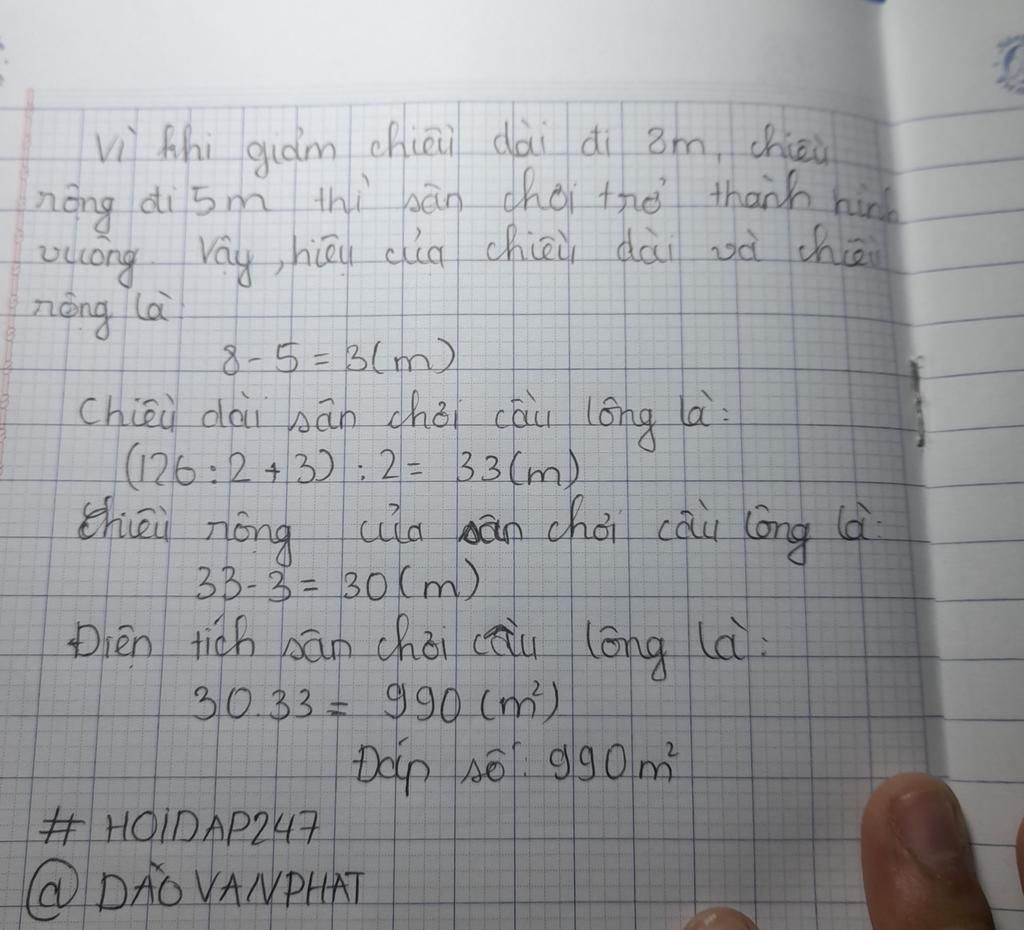 Vì khi giảm chiều dài đi 8m, chiều
rộng đi 5m thì sân chơi trở thành hình
vuông. Vậy, hiệu của chiều dài và chiều
rộng là
8 - 5 = 3(m)
Chiều dài sân chơi cầu lông là:
(126 : 2 + 3) : 2 = 33(m)
Chiều rộng của sân chơi cầu lông là:
33 - 3 = 30(m)
Diện tích sân chơi cầu lông là:
30.33 = 990 (m²)
Đáp số: 990m²
# HOIDAP247
@ DÀOVANPHAT